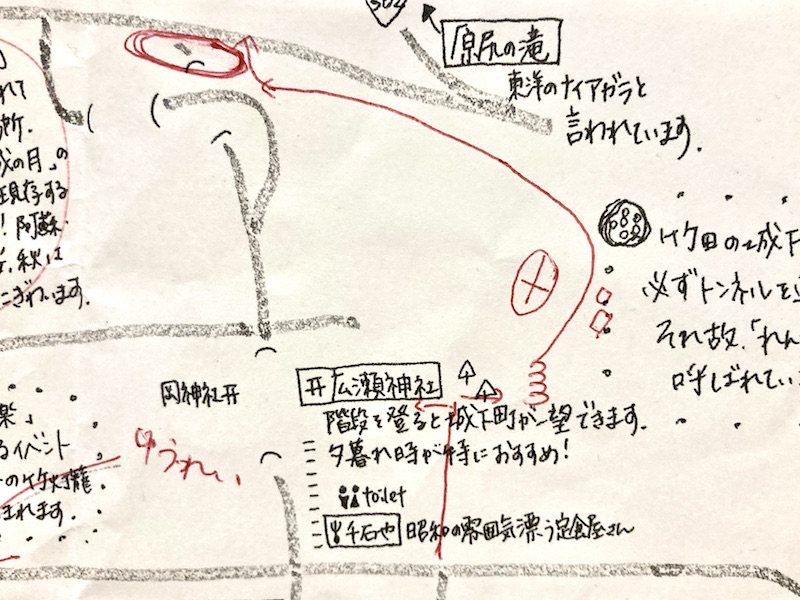 502
原尻の滝
東洋のナイアガラと
言われています。
れて
成の月」の
現存する
！阿蘇
秋は
にぎわいます。
竹田の城下
必ずトンネルを
それ故、「れん
呼ばれてい
岡神社
広瀬神社
階段を登ると城下町が一望できます。
夕暮れ時が特におすすめ！
toilet
千石や 昭和の雰囲気漂う定食屋さん
楽」
るイベント
の竹灯籠
まれます。
ゆうれい